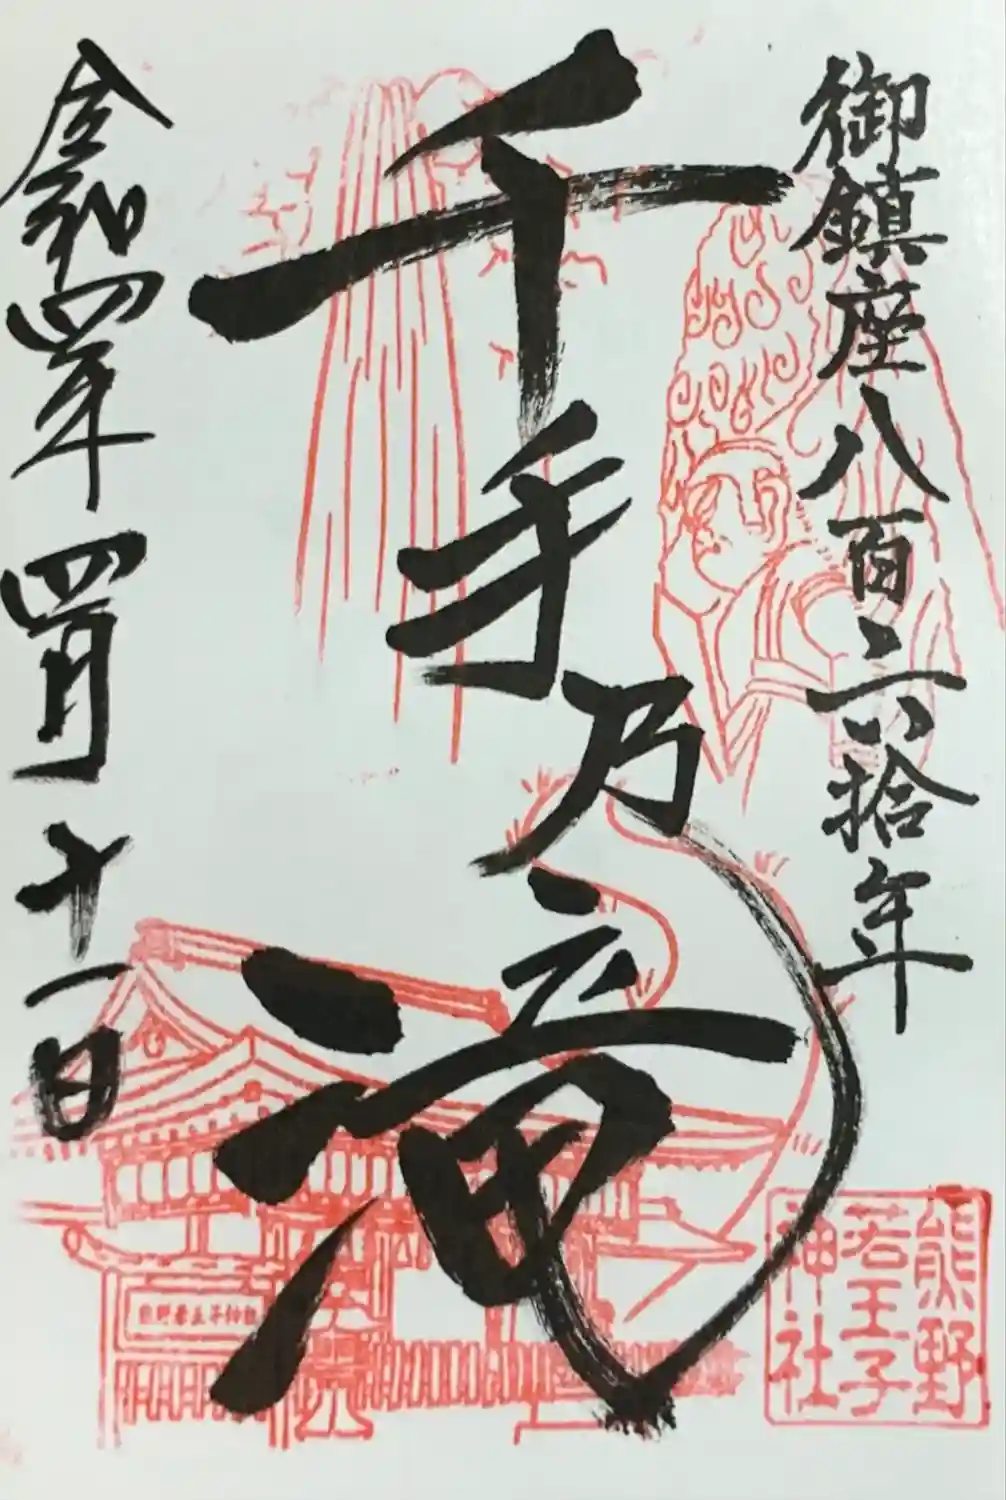 御鎮座八百六拾年
千手乃滝
令和四年四月十一日
熊野若王子神社
熊野若王子神社